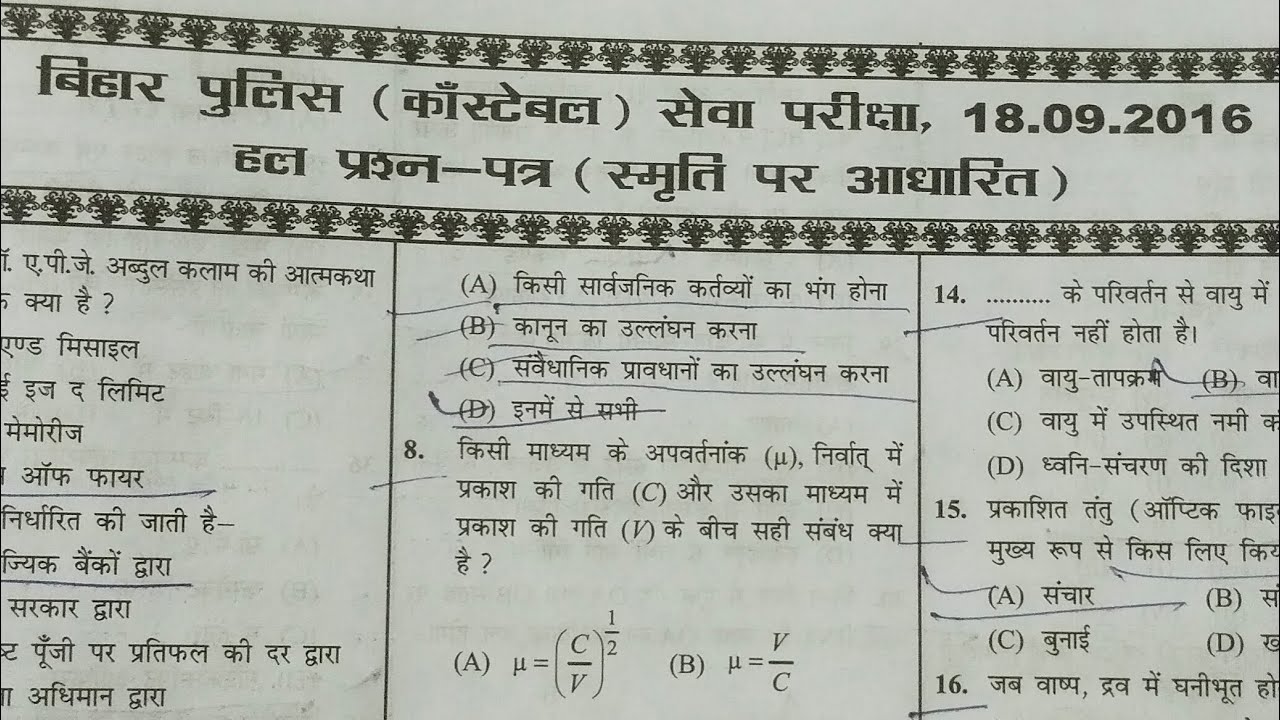 बिहार पुलिस (काँस्टेबल) सेवा परीक्षा, 18.09.2016
हल प्रश्न–पत्र (स्मृति पर आधारित)
ए.पी.जे. अब्दुल कलाम की आत्मकथा
क्या है ?
एण्ड मिसाइल
इज द लिमिट
मेमोरीज
ऑफ फायर
निर्धारित की जाती है–
बैंकों द्वारा
सरकार द्वारा
पूँजी पर प्रतिफल की दर द्वारा
अधिमान द्वारा
(A) किसी सार्वजनिक कर्तव्यों का भंग होना
(B) कानून का उल्लंघन करना
(C) संवैधानिक प्रावधानों का उल्लंघन करना
(D) इनमें से सभी
8. किसी माध्यम के अपवर्तनांक (μ), निर्वात् में
प्रकाश की गति (C) और उसका माध्यम में
प्रकाश की गति (V) के बीच सही संबंध क्या
है ?
(A) μ = (C/V)^1/2 (B) μ = V/C
14. .......... के परिवर्तन से वायु में
परिवर्तन नहीं होता है।
(A) वायु-तापक्रम (B)
(C) वायु में उपस्थित नमी
(D) ध्वनि-संचरण की दिशा
15. प्रकाशित तंतु (ऑप्टिक
मुख्य रूप से किस लिए
(A) संचार (B)
(C) बुनाई (D)
16. जब वाष्प, द्रव में घनीभूत